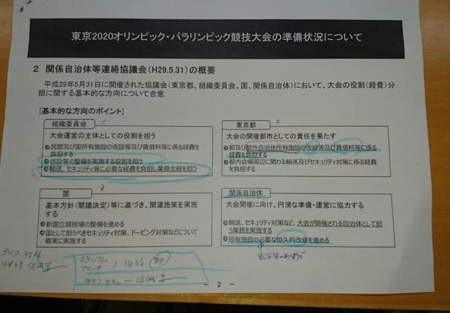 東京2020オリンピック・パラリンピック競技大会の準備状況について
２ 関係自治体等連絡協議会（H29.5.31）の概要
平成29年5月31日に開催された協議会（東京都、組織委員会、国、関係自治体）において、大会の役割（経費）分
担に関する基本的な方向について合意
[基本的な方向のポイント]
組織委員会
大会運営の主体としての役割を担う
○民間及び国所有施設の仮設等及び賃借料等に係る経費を
負担する
○仮設等の整備を実施する役割を担う
○輸送、セキュリティ等に必要な経費を負担し業務全般を担う
東京都
大会の開催都市としての責任を果たす
○都及び都外自治体所有施設の仮設等及び賃借料等に係る
経費を負担する
○都内会場周辺に関わる輸送及びセキュリティ対策に係る経費
を負担する
国
基本方針（閣議決定）等に基づき、関連施策を実施
する
○新国立競技場の整備を進める
○国として担うべきセキュリティ対策、ドーピング対策などについて
着実に実施する
関係自治体
大会開催に向け、円滑な準備・運営に協力する
○輸送、セキュリティなど、大会が開催される自治体として担
う業務を実施する
○所有施設の必要な恒久的改修を進める
- 2 -